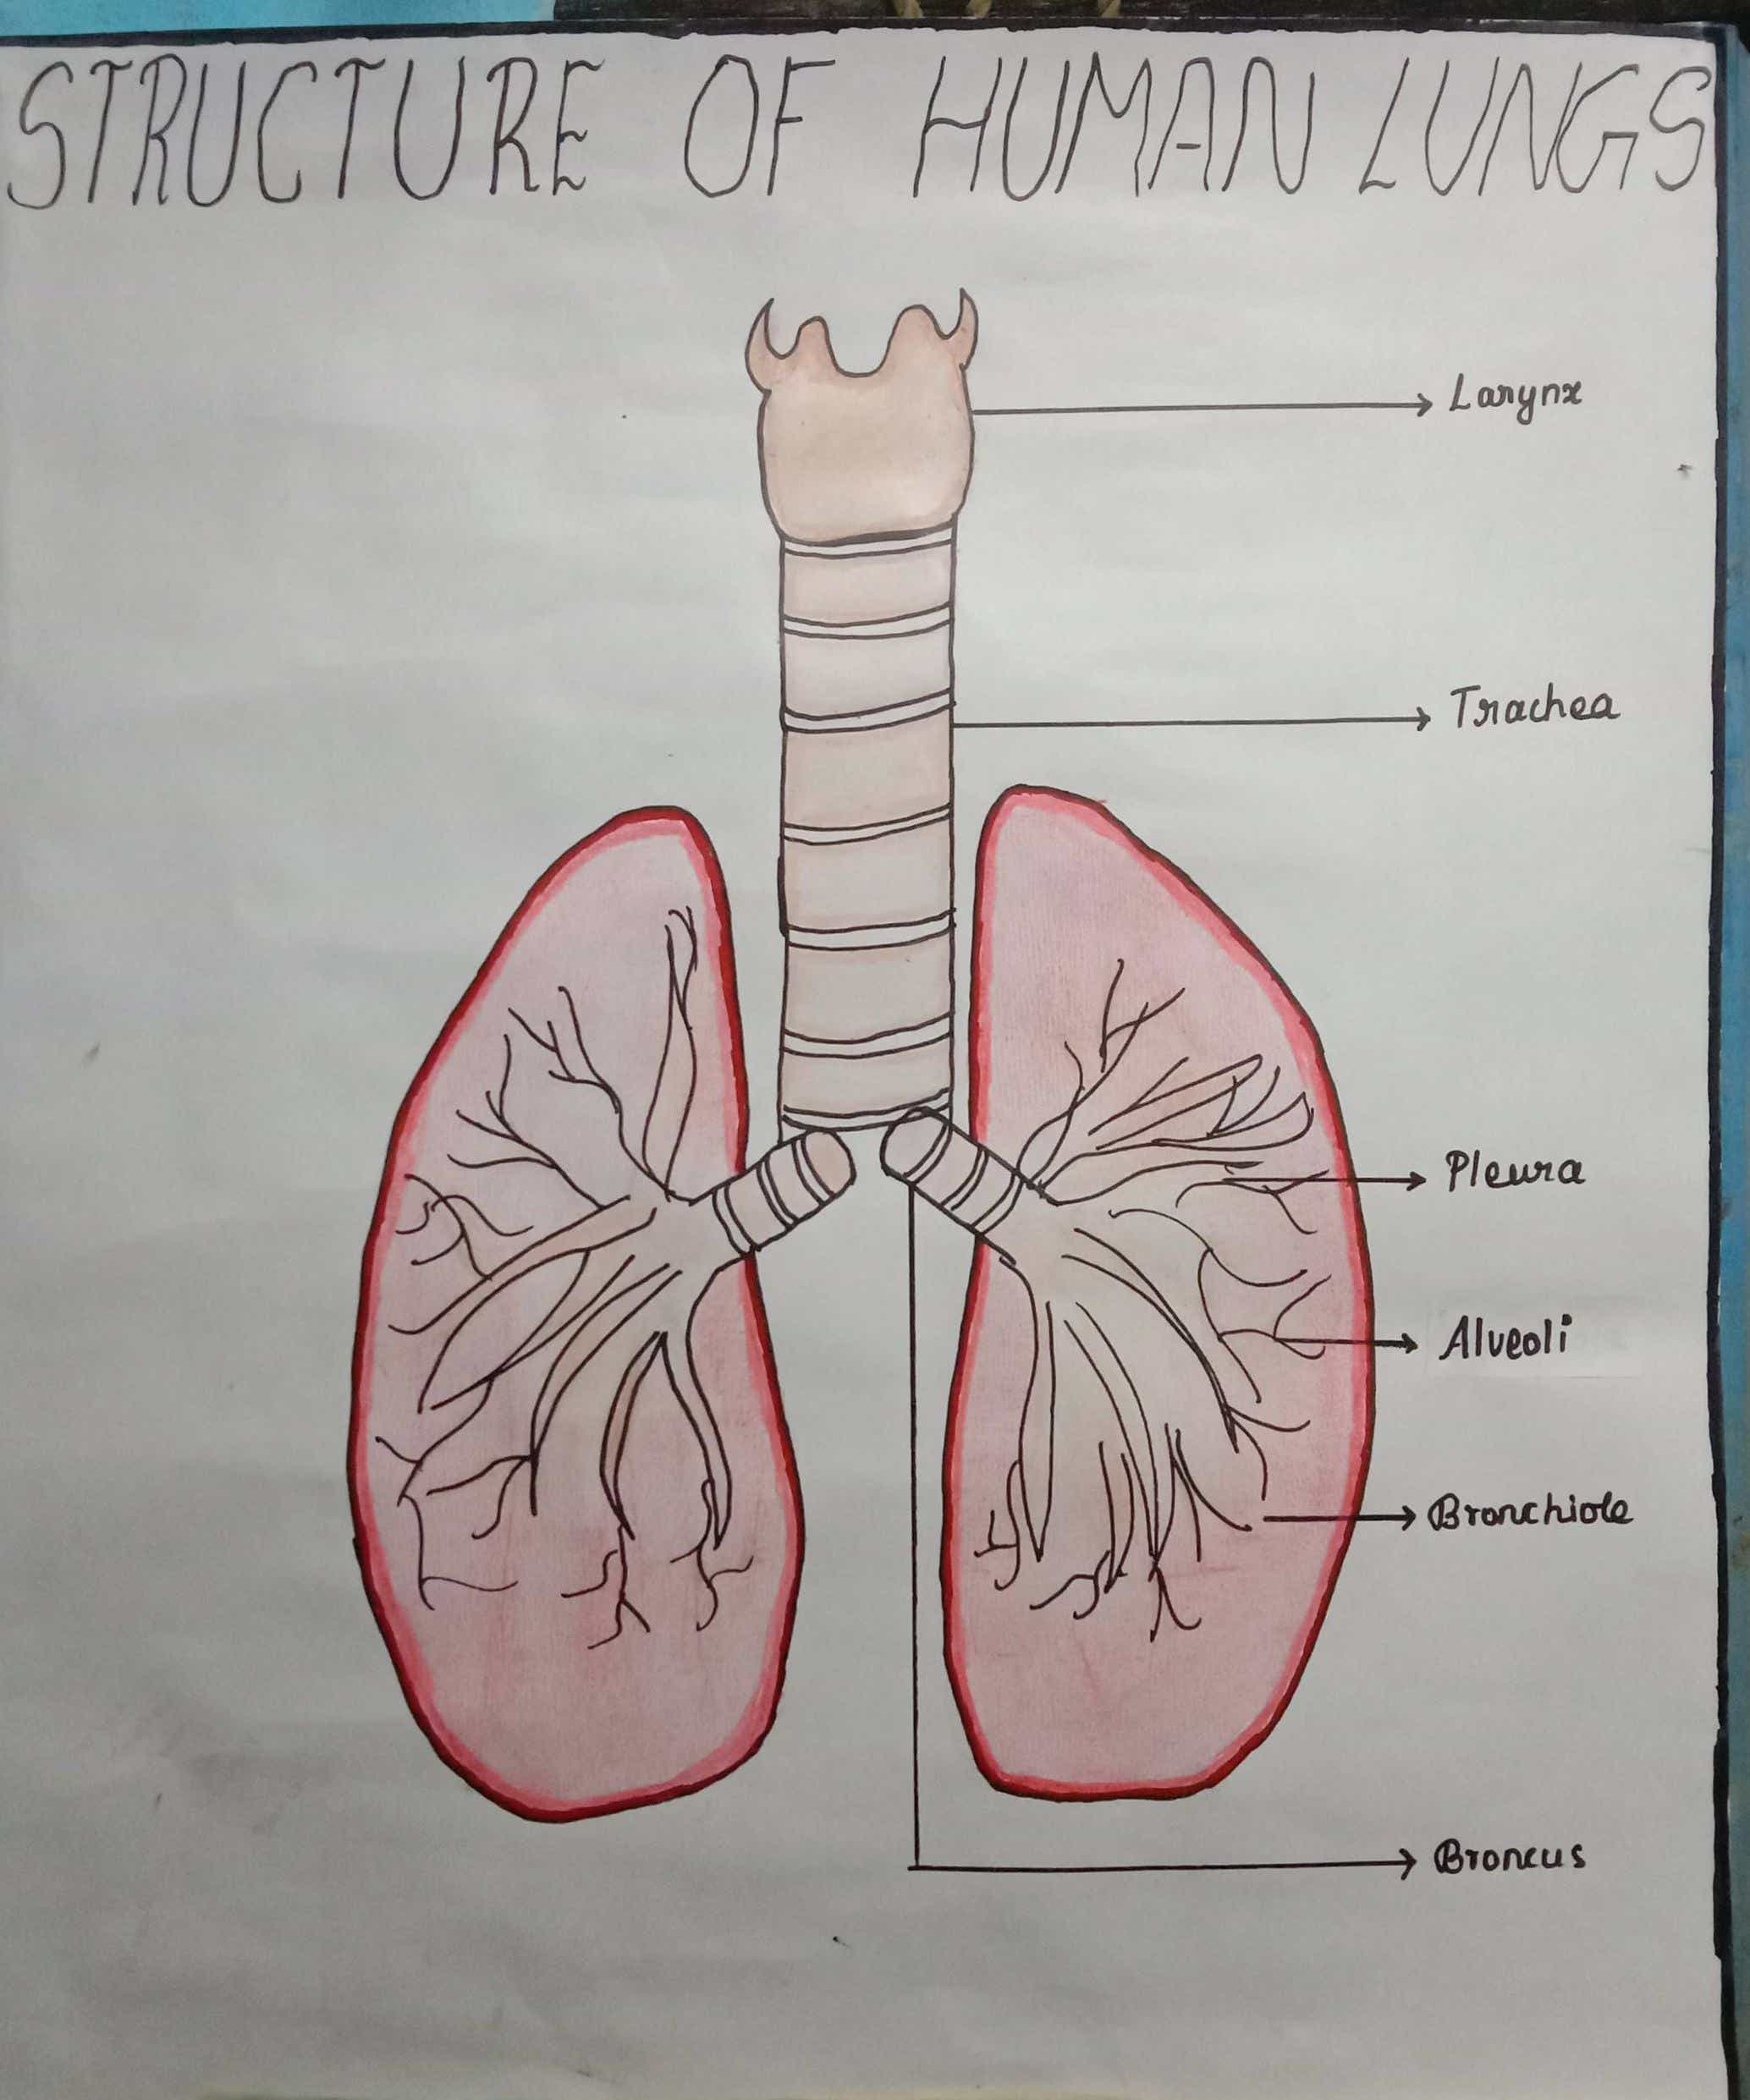 STRUCTURE OF HUMAN LUNGS
Larynx
Trachea
Pleura
Alveoli
Bronchiole
Broncus